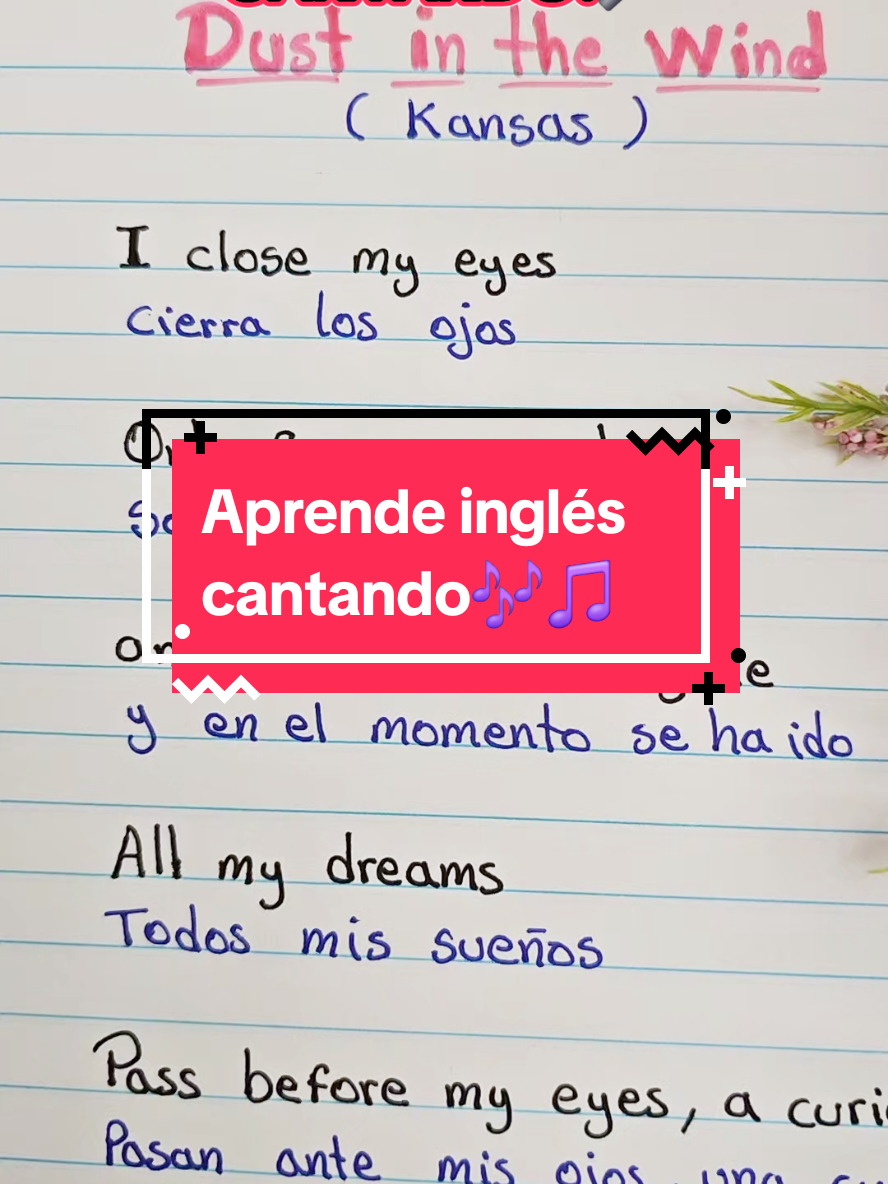 Dust in the Wind
( Kansas )
I close my eyes
cierra los ojos
Aprende inglés
cantando🎶🎵
y en el momento se ha ido
All my dreams
Todos mis sueños
Pass before my eyes, a
Pasan ante mis ojos una